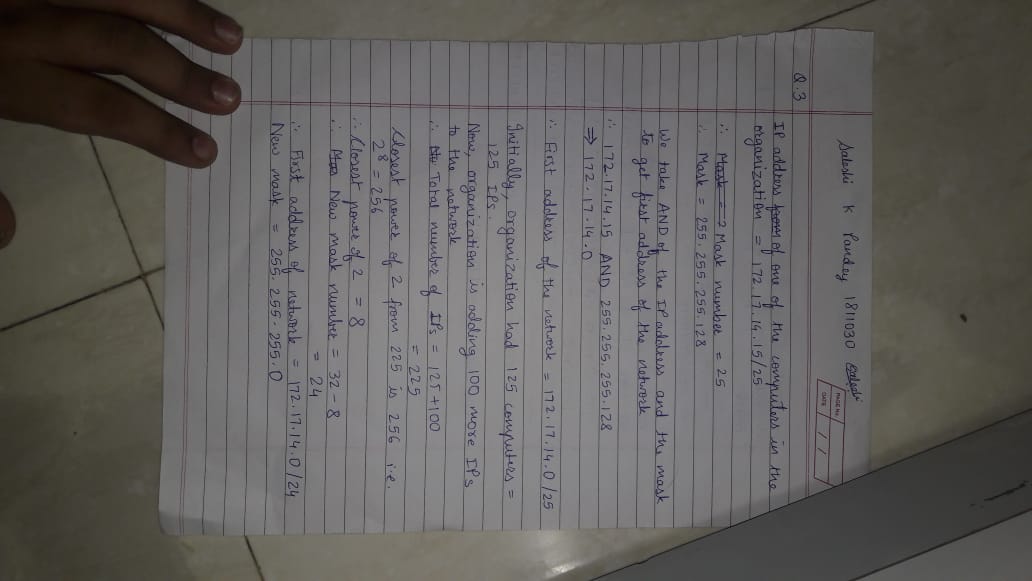 Saloshi K Pandey 1811030 Saloshi
PAGE No.
DATE / /
Q.3
IP address from of one of the computers in the
organization = 172.17.14.15/25
∴ Mask = ? Mask number = 25
∴ Mask = 255.255.255.128
We take AND of the IP address and the mask
to get first address of the network
∴ 172.17.14.15 AND 255.255.255.128
⇒ 172.17.14.0
∴ First address of the network = 172.17.14.0/25
Initially, organization had 125 computers =
125 IPs.
Now, organization is adding 100 more IPs
to the network
∴ Total number of IPs = 125+100
= 225
Closest power of 2 from 225 is 256 i.e.
2⁸ = 256
∴ Closest power of 2 = 8
∴ New mask number = 32-8
= 24
∴ First address of network = 172.17.14.0/24
New mask = 255.255.255.0